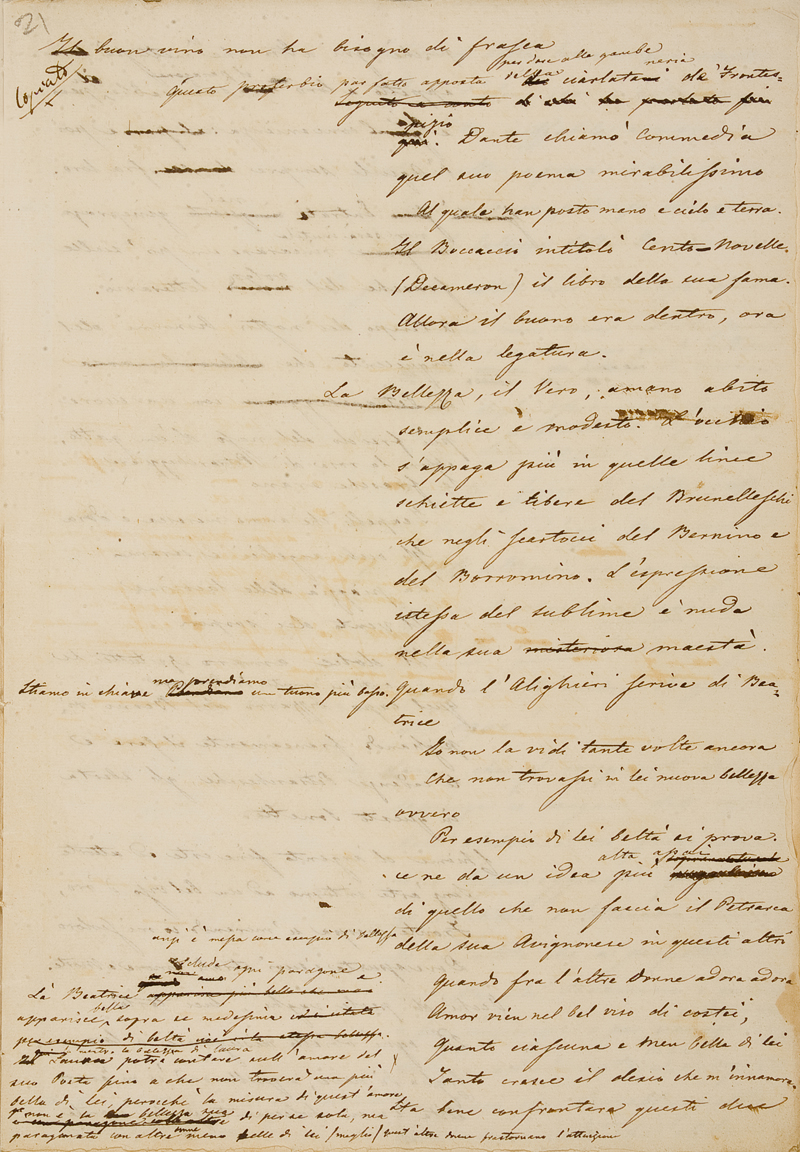 21
Il buon vino non ha bisogno di frasca
Copiato
per dare alla gambe
neria
questo proverbio par fatto apposta della ciarlatani de' Frontes-
pizio
qui. Dante chiamò Commedia
quel suo poema mirabilissimo
Al quale han posto mano e cielo e terra.
Il Boccaccio intitolò Cento Novelle
(Decameron) il libro della sua fama.
Allora il buono era dentro, ora
è nella legatura.
La Bellezza, il Vero, amano abito
semplice e modesto. L'occhio
s'appaga più in quelle linee
schiette e libere del Brunelleschi
che negli scartocci del Bernino e
del Borromino. L'espressione
istessa del sublime è nuda
nella sua misteriosa maestà.
Stiamo in chiave ma prendiamo un tuono più basso. Quando l'Alighieri scrive di Bea-
trice
Io non la vidi tante volte ancora
Che non trovassi in lei nuova bellezza
ovvero
Per esempio di lei beltà si prova.
ce ne da un idea più alta assai
di quello che non faccia il Petrarca
della sua Avignonese in questi altri
Quando fra l'altre Donne adora adora
Amor vien nel bel viso di costei,
Quanto ciascuna è men bella di lei
Tanto cresce il desio che m'innamora.
bene confrontara questi due
anzi è messa come esempio di bellezza
esclude ogni paragone e
La Beatrice apparisce più bella che mai
apparisce bella sopra se medesima
per esempio di beltà cioè è la stessa bellezza.
mentre la bellezza di Laura
potrà contare sull'amore del
suo Poeta fino a che non troverà una più
bella di lei, perocchè la misura di quest'amore
non è la bellezza sua di per se sola, ma
paragonata con altre donne meno belle di lei (meglio) quest'altre donne frastornano l'attenzione